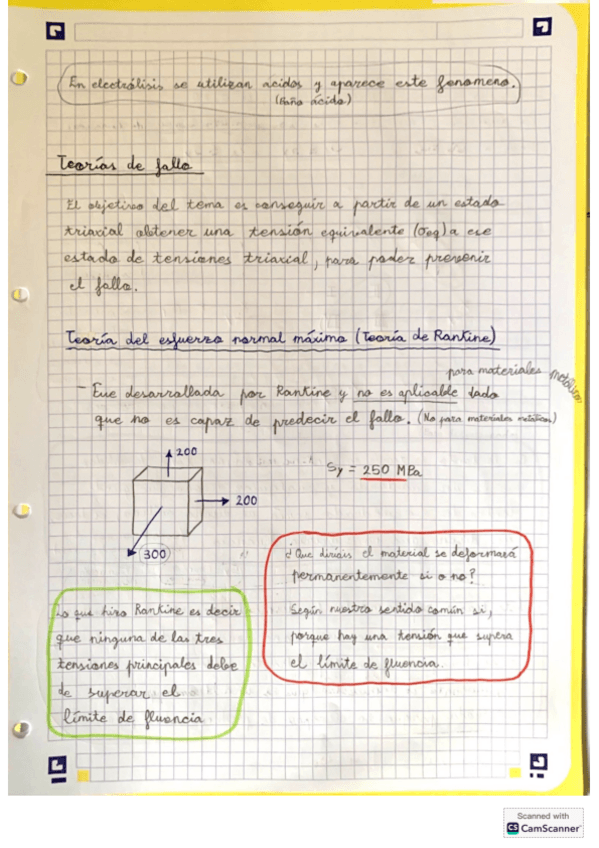 En electrólisis se utilizan ácidos y aparece este fenomeno.
(Baño ácido)
Teorías de fallo
El objetivo del tema es conseguir a partir de un estado
triaxial obtener una tensión equivalente (σeq) a ese
estado de tensiones triaxial, para poder prevenir
el fallo.
Teoría del esfuerzo normal máximo (Teoría de Rankine)
para materiales metálicos
- Fue desarrollada por Rankine y no es aplicable dado
que no es capaz de predecir el fallo. (No para materiales metálicos)
200
200
300
Sy = 250 MPa
¿Que diriais el material se deformará
permanentemente si o no?
Según nuestro sentido común si,
porque hay una tensión que supera
el límite de fluencia.
Lo que hizo Rankine es decir
que ninguna de las tres
tensiones principales debe
de superar el
límite de fluencia
Scanned with
CS CamScanner